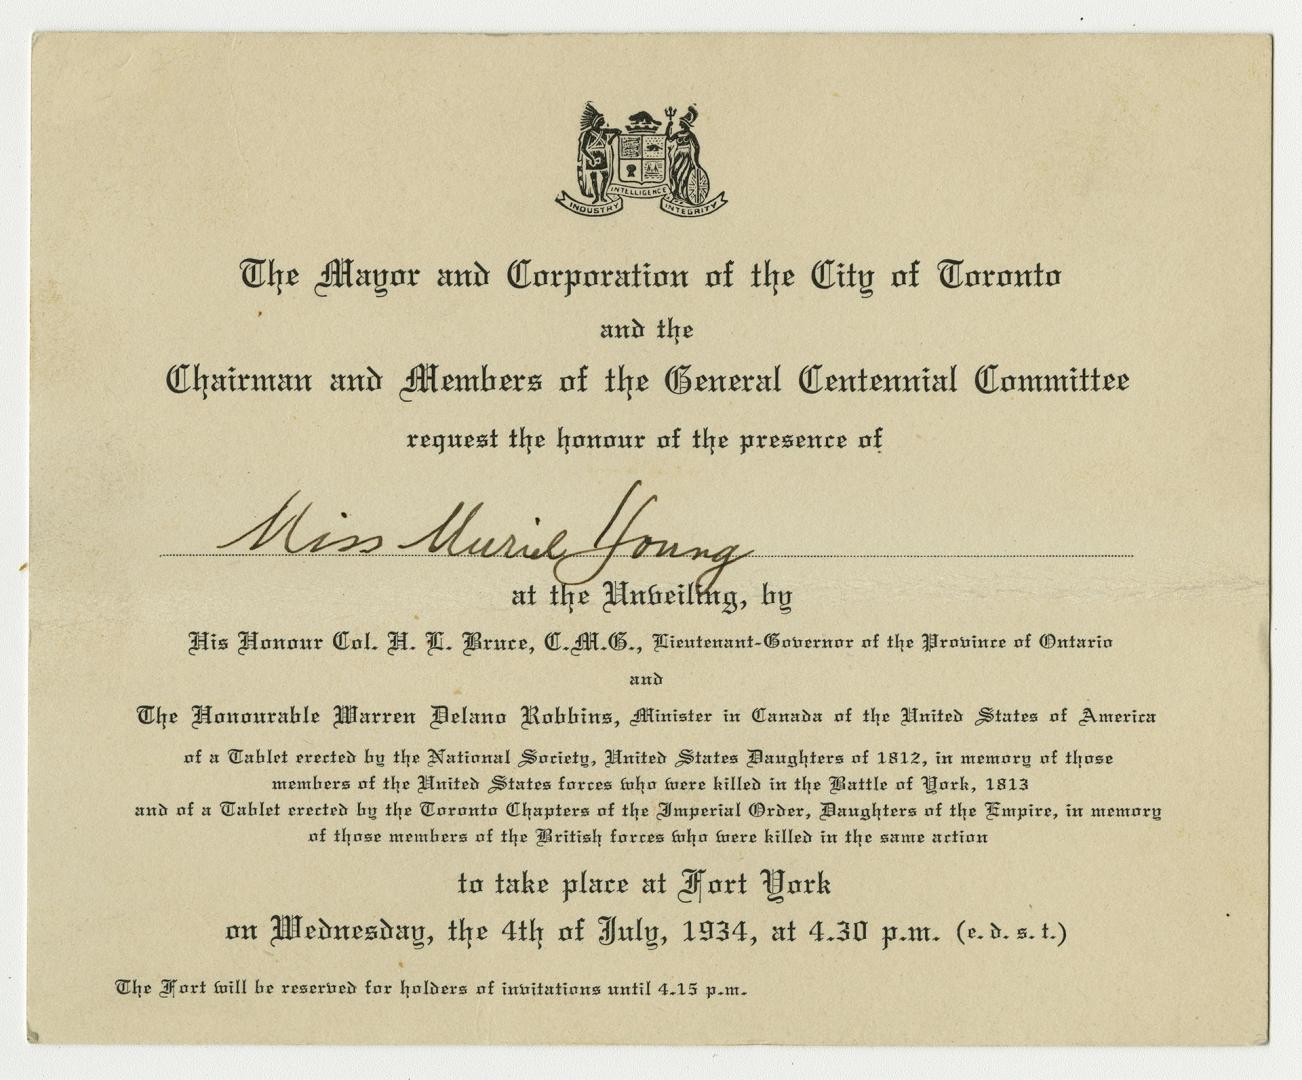 INDUSTRY INTELLIGENCE INTEGRITY
The Mayor and Corporation of the City of Toronto
and the
Chairman and Members of the General Centennial Committee
request the honour of the presence of
Miss Muriel Young
at the Unveiling, by
His Honour Col. H. L. Bruce, C.M.G., Lieutenant-Governor of the Province of Ontario
and
The Honourable Warren Delano Robbins, Minister in Canada of the United States of America
of a Tablet erected by the National Society, United States Daughters of 1812, in memory of those
members of the United States forces who were killed in the Battle of York, 1813
and of a Tablet erected by the Toronto Chapters of the Imperial Order, Daughters of the Empire, in memory
of those members of the British forces who were killed in the same action
to take place at Fort York
on Wednesday, the 4th of July, 1934, at 4.30 p.m. (e. d. s. t.)
The Fort will be reserved for holders of invitations until 4.15 p.m.